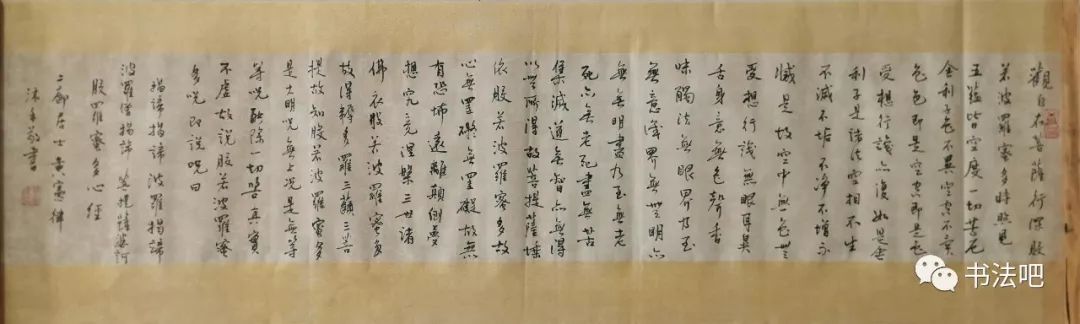 觀自在菩薩行深般
若波羅蜜多時照見
五蘊皆空度一切苦厄
舍利子色不異空空不異
色色即是空空即是色
受想行識亦復如是舍
利子是諸法空相不生
不滅不垢不淨不增不
減是故空中無色無
受想行識無眼耳鼻
舌身意無色聲香
味觸法無眼界乃至
無意識界無無明亦
無無明盡乃至無老
死亦無老死盡無苦
集滅道無智亦無得
以無所得故菩提薩埵
依般若波羅蜜多故
心無罣礙無罣礙故無
有恐怖遠離顛倒夢
想究竟涅槃三世諸
佛依般若波羅蜜多
故得耨多羅三藐三菩
提故知般若波羅蜜多
是大明咒無上咒是無等
等咒能除一切苦真實
不虛故說般若波羅蜜
多咒即說咒曰
揭諦揭諦波羅揭諦
波羅僧揭諦菩提薩婆訶
般羅蜜多心經
二鄉居士黃憲律
沐手敬書
书法吧